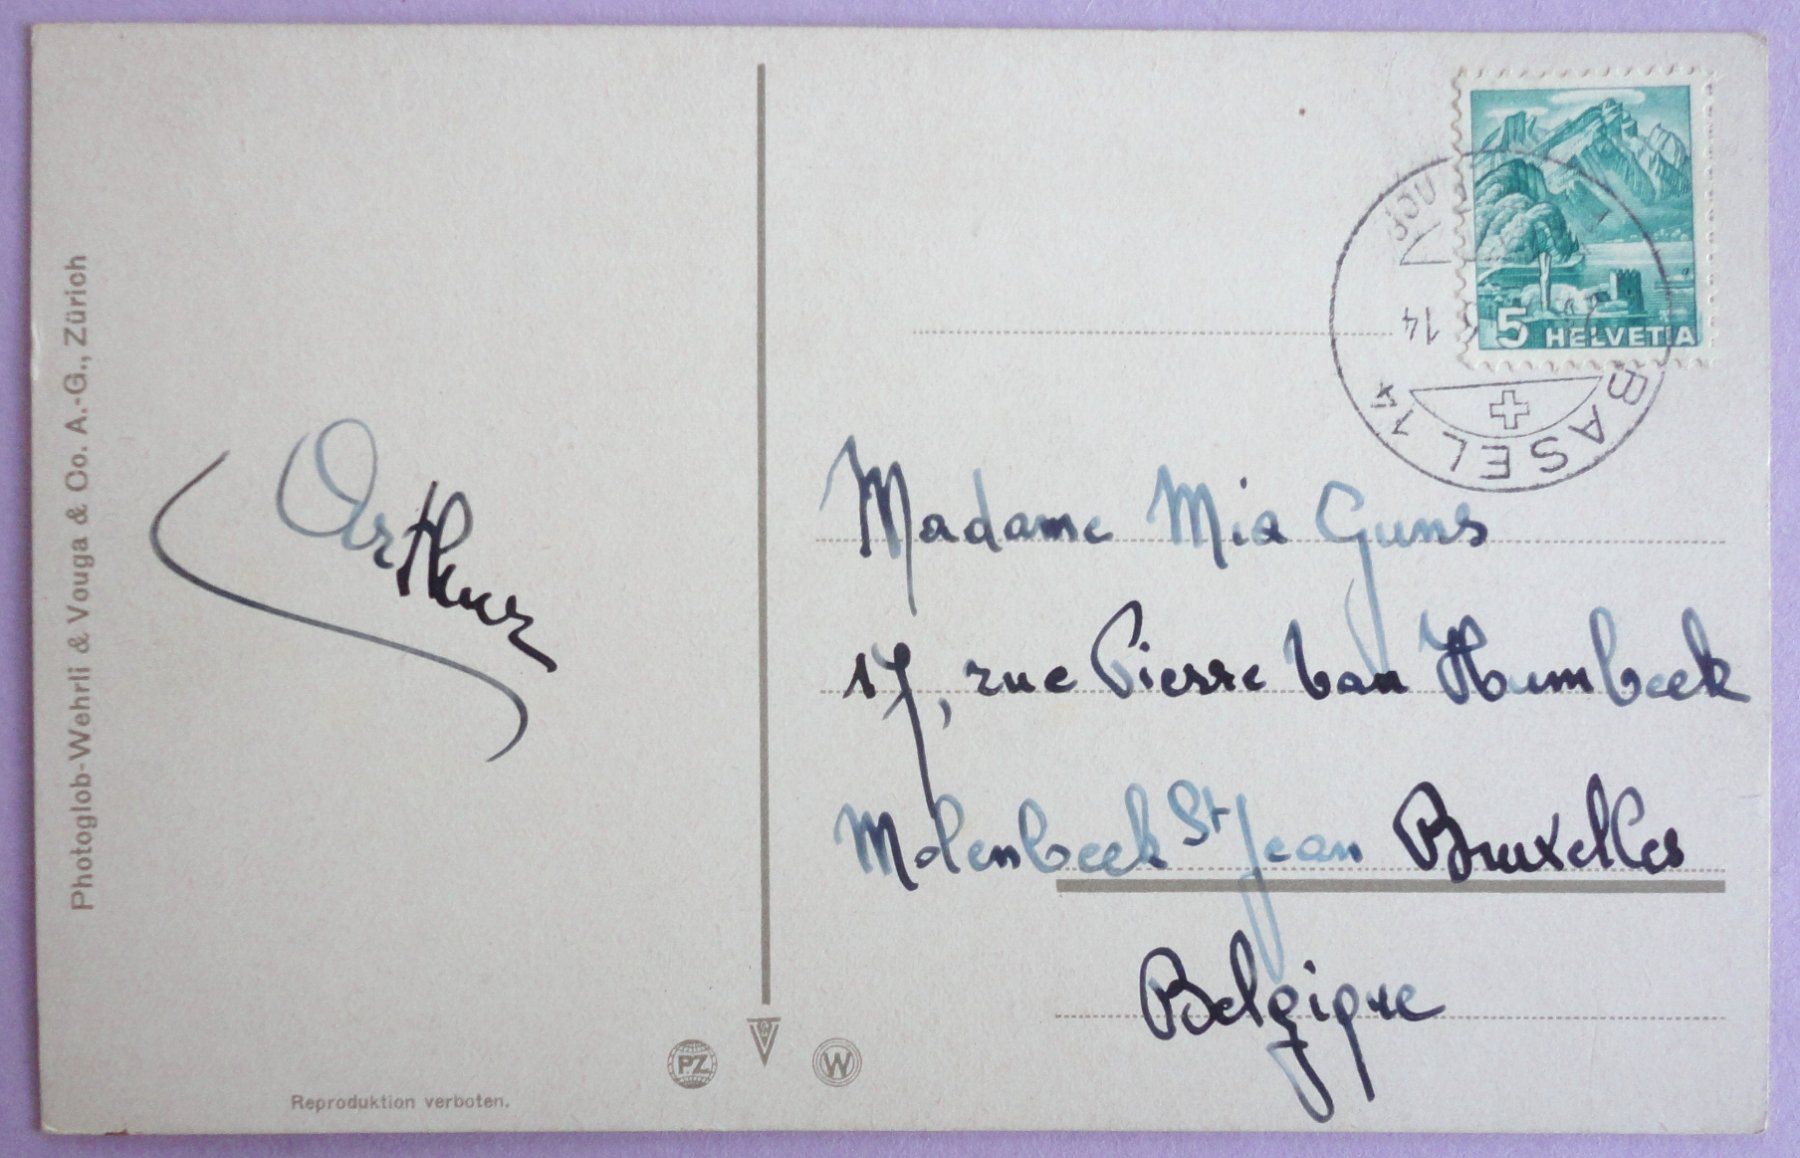 Photoglob-Wehrli & Vouga & Co. A.-G., Zürich
Arthur
Reproduktion verboten.
PZ
W
5 HELVETIA
14
BASEL 14
Madame Mia Guns
17, rue Pierre Van Humbeek
Molenbeek St Jean Bruxelles
Belgique